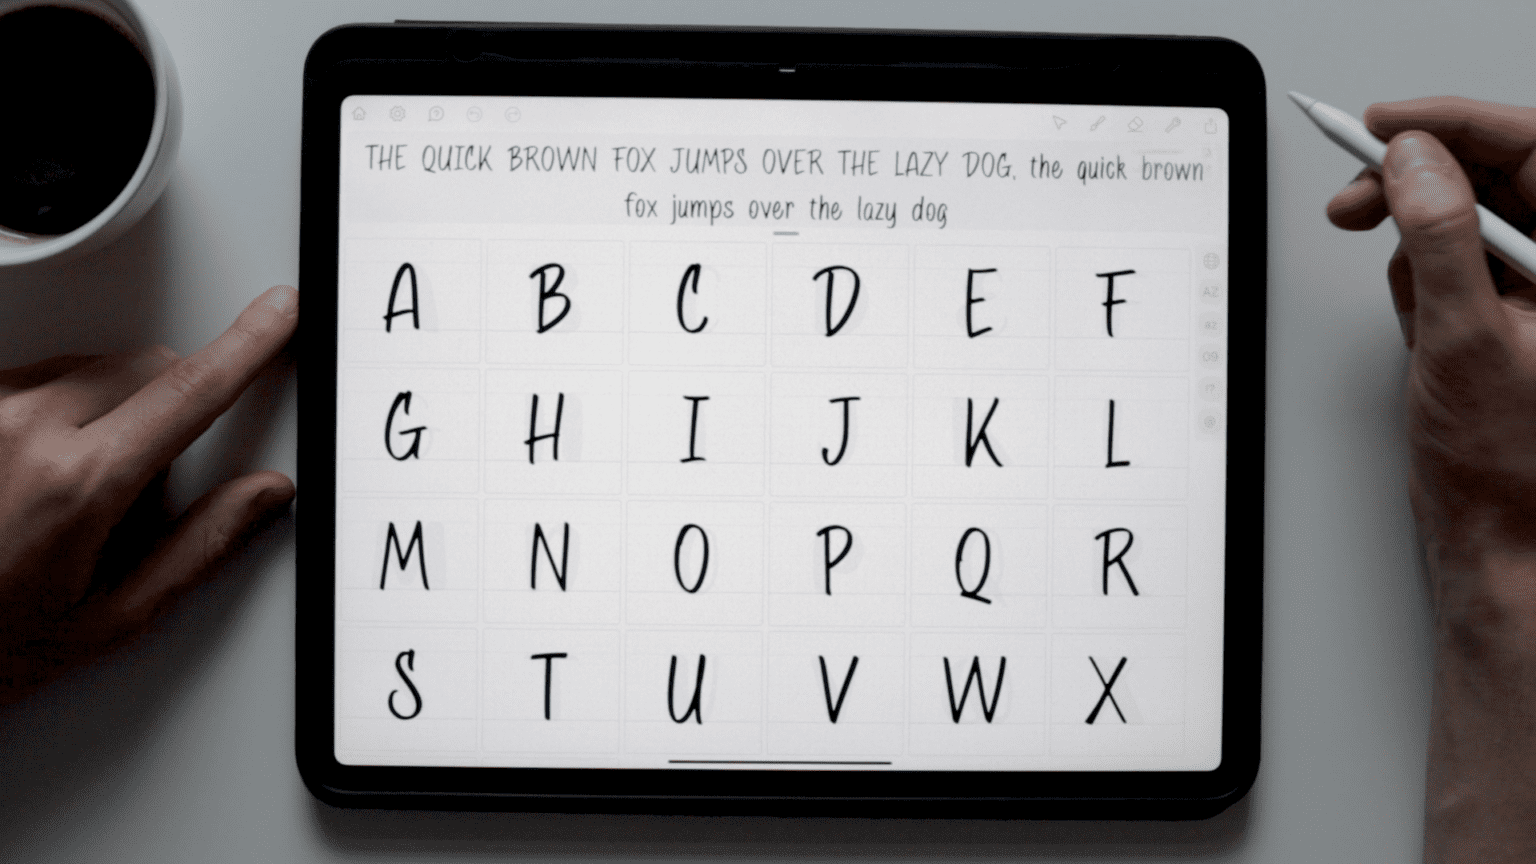 THE QUICK BROWN FOX JUMPS OVER THE LAZY DOG, the quick brown
fox jumps over the lazy dog
A B C D E F
G H I J K L
M N O P Q R
S T U V W X
AZ
az
09
!?